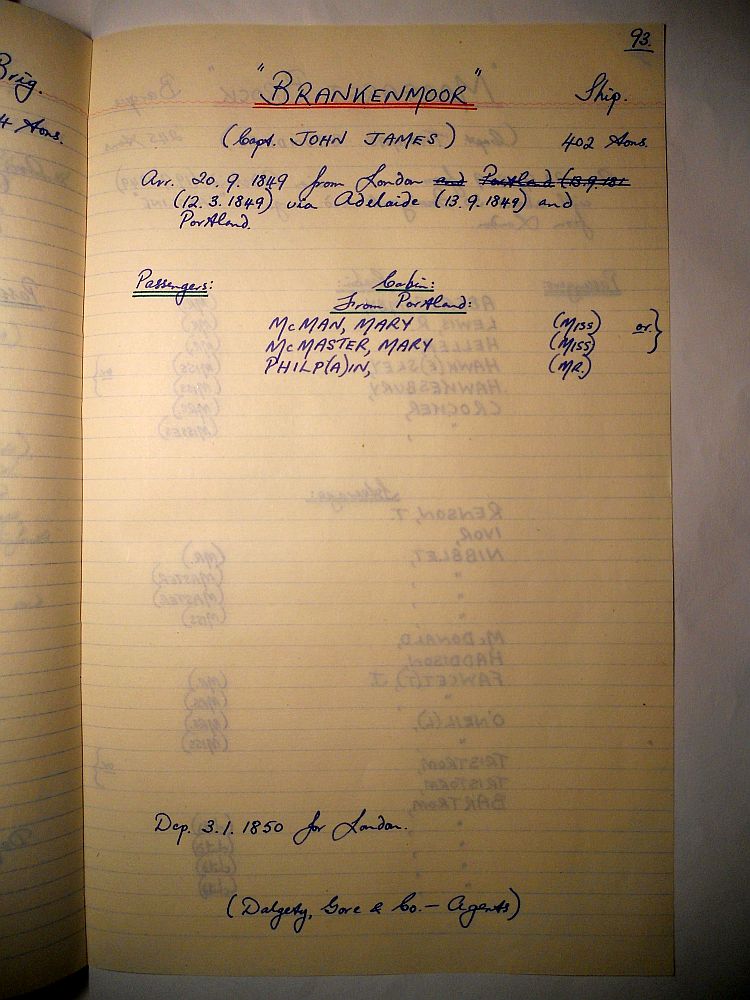 93.
Brig.
"BRANKENMOOR" Ship.
4 tons.
(Capt. JOHN JAMES) 402 tons.
Arr. 20.9.1849 from London and Portland (13.9.181
(12.3.1849) via Adelaide (13.9.1849) and
Portland.
Passengers: Cabin:
From Portland:
McMAN, MARY (MISS) or }
McMASTER, MARY (MISS)
PHILP(A)IN, (MR.)
Dep. 3.1.1850 for London.
(Dalgety, Gore & Co. — Agents)